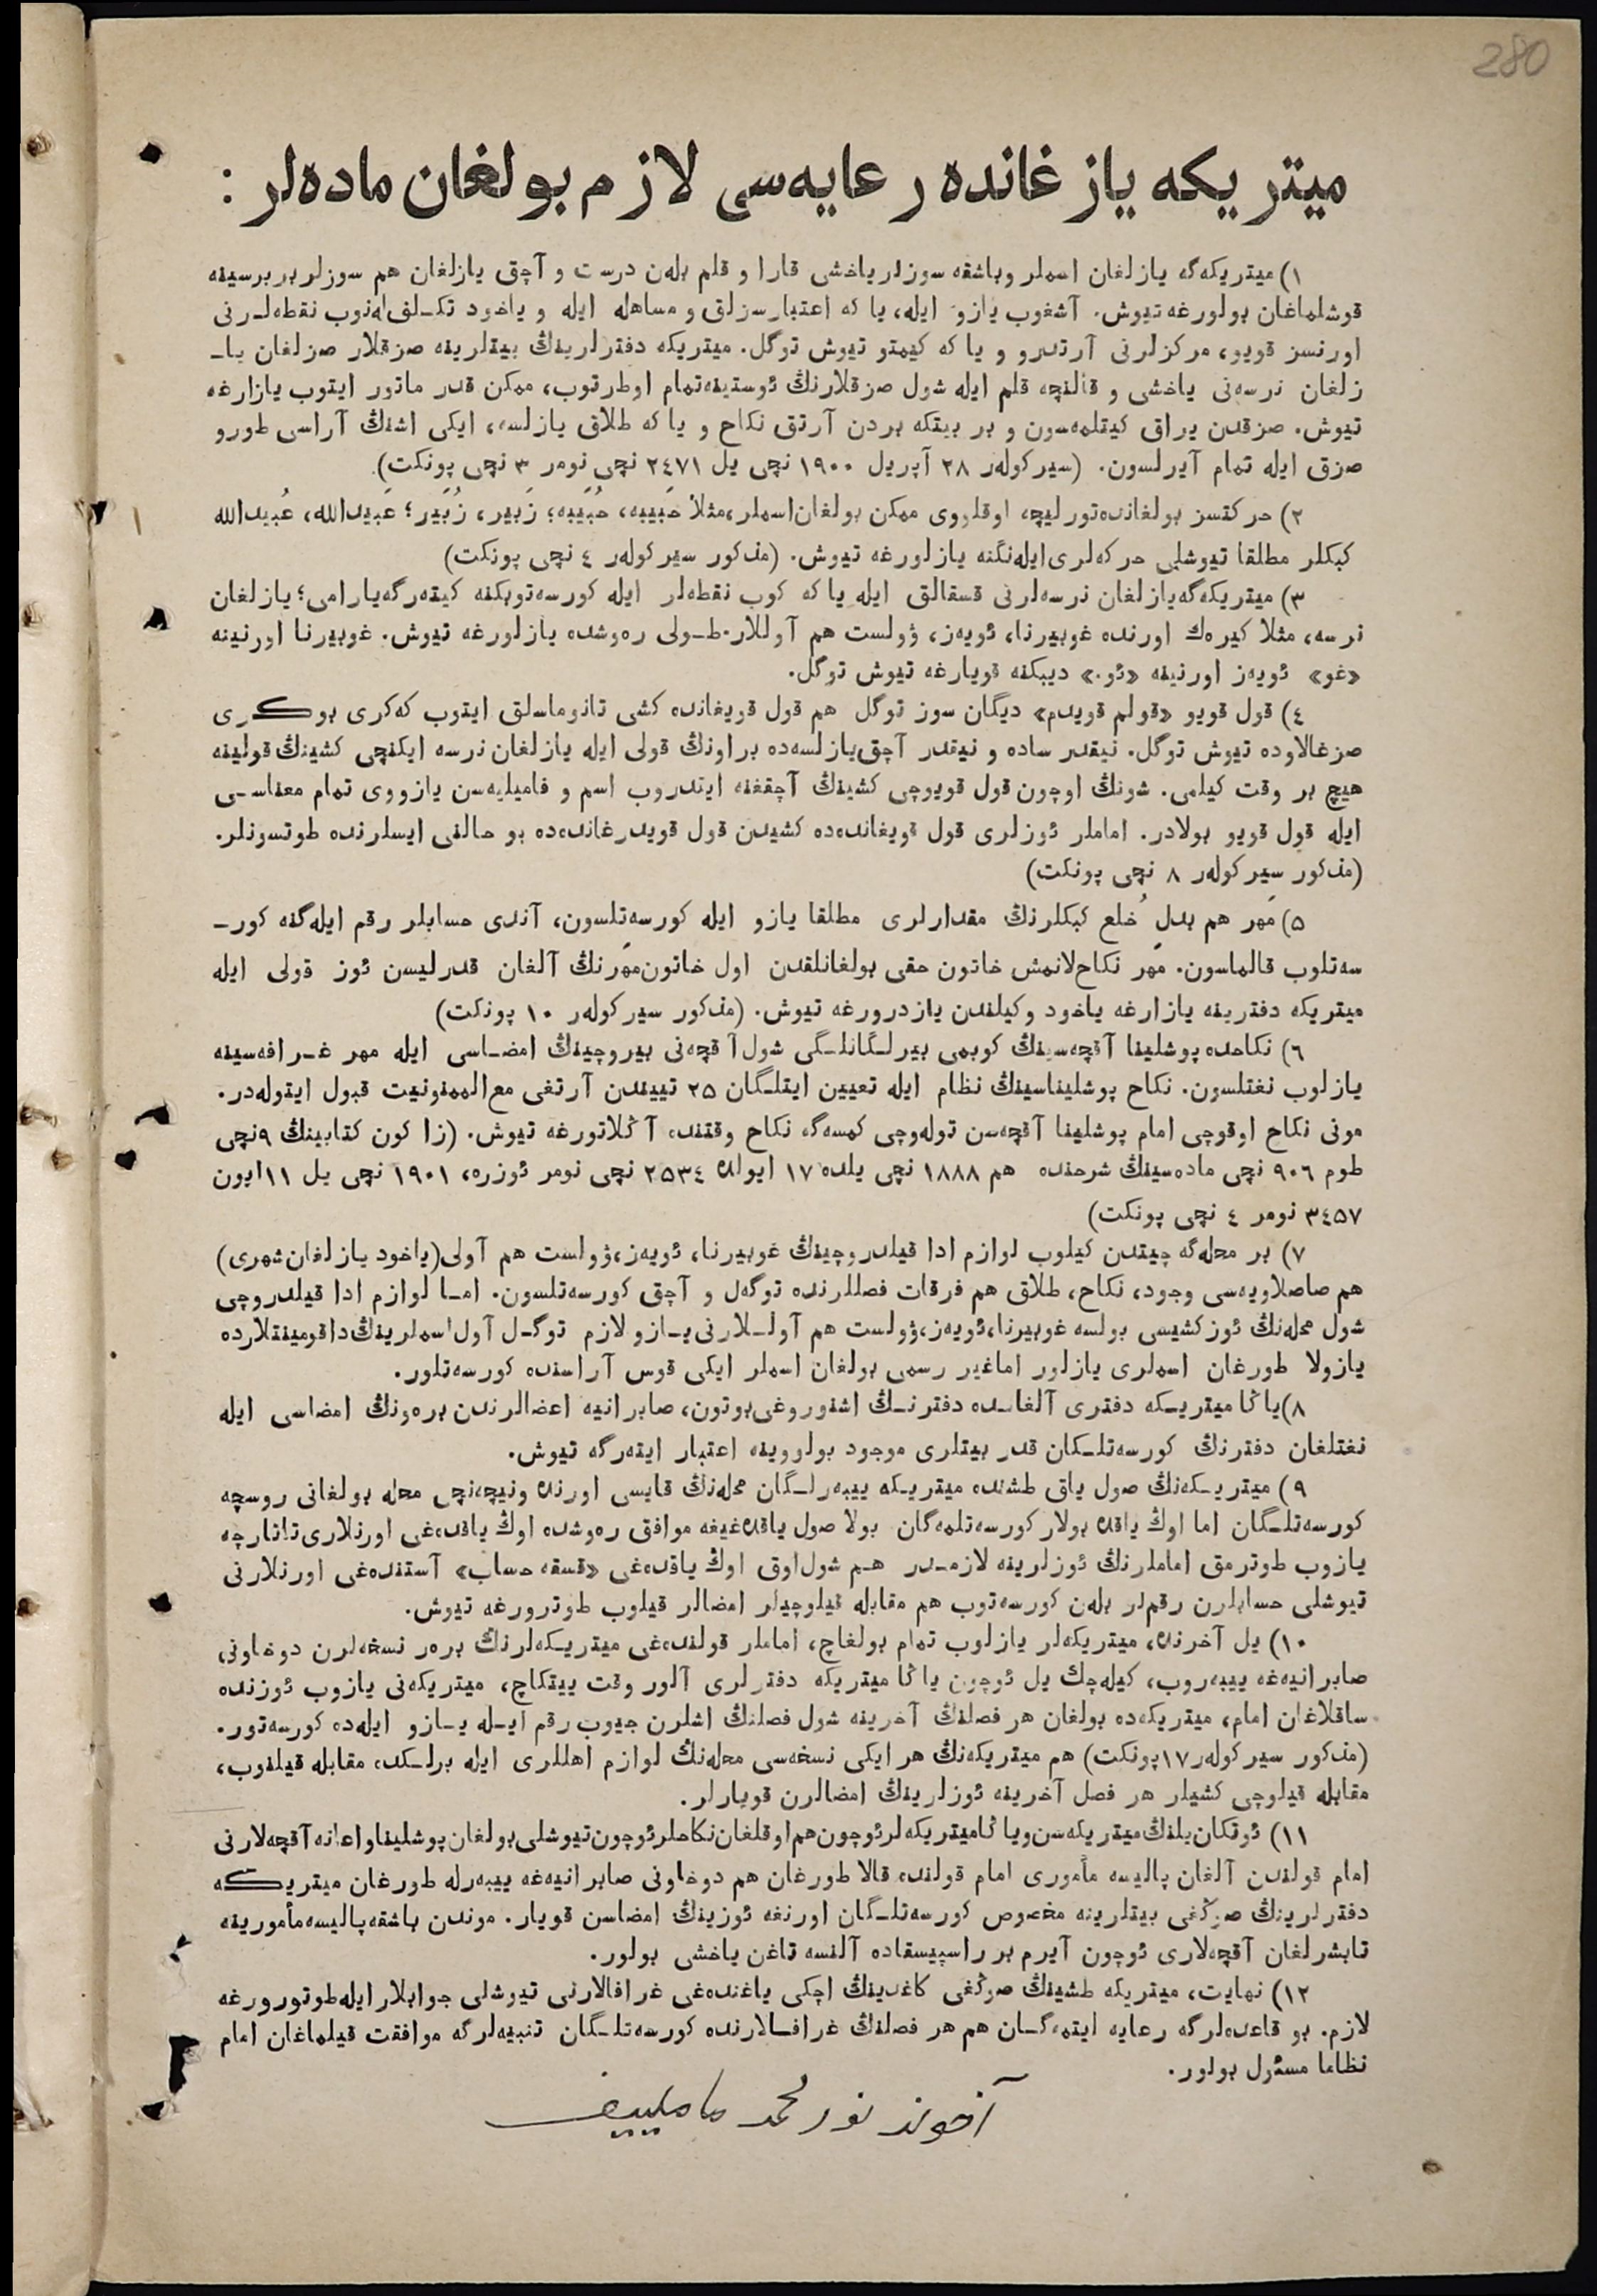 280
ميتريكه يازغانده رعايه‌سى لازم بولغان ماده‌لر :
١) ميتريكه‌گه يازلغان اسملر وباشقه سوزلر ياخشى قارا و قلم بله‌ن درست و آچق يازلغان هم سوزلر بربرسينه
قوشلماغان بولورغه تيوش. آشغوب يازو ايله، يا كه اعتبارسزلق و مساهله ايله و ياخود تكـلف‌له‌نوب نقطه‌لـرنى
اورنسز قويو، مركزلرنى آرتدرو و يا كه كيمتو تيوش توگل. ميتريكه دفترلرينڭ بيتلرينه صزقلار صزلغان يا-
زلغان نرسه‌نى ياخشى و قالنچه قلم ايله شول صزقلارنڭ ئوستينه‌تمام اوطرتوب، ممكن قدر ماتور ايتوب يازارغه
تيوش. صزقدن يراق كيتلمه‌سون و بر بيتكه بردن آرتق نكاح و يا كه طلاق يازلسه، ايكى اشنڭ آراسى طورو
صزق ايله تمام آيرلسون. (سيركوله‌ر ٢٨ آپريل ١٩٠٠ نچى يل ٢٤٧١ نچى نومر ٣ نچى پونكت).
٢) حركتسز بولغانده‌تورليچه اوقلووى ممكن بولغان‌اسملر،مثلا حَبيبه، حُبَيبه؛ زَبير، زُبَير؛ عَبيدالله، عُبيدالله
كبكلر مطلقا تيوشلى حركه‌لرى‌ايله‌نگنه يازلورغه تيوش. (مذكور سيركوله‌ر ٤ نچى پونكت)
٣) ميتريكه‌گه‌يازلغان نرسه‌لرنى قسقالق ايله يا كه كوب نقطه‌لر ايله كورسه‌توبكنه كيته‌رگه‌يارامى؛ يازلغان
نرسه، مثلا كيره‌ك اورنده غوبيرنا، ئويه‌ز، ۋولست هم آوللار.طـولى ره‌وشده يازلورغه تيوش. غوبيرنا اورنينه
«غو» ئويه‌ز اورنينه «ئو.» ديبكنه قويارغه تيوش توگل.
٤) قول قويو «قولم قويدم» ديگان سوز توگل هم قول قويغانده كشى تانوماسلق ايتوب كه‌كرى بوكـرى
صزغالاوده تيوش توگل. نيقدر ساده و نيقدر آچق‌يازلسه‌ده براونڭ قولى ايله يازلغان نرسه ايكنچى كشينڭ قولينه
هيچ بر وقت كيلمى. شونڭ اوچون قول قويوچى كشينڭ آچقغنه ايتدروب اسم و فاميليه‌سن يازووى تمام معناسـى
ايله قول قويو بولادر. اماملر ئوزلرى قول قويغانده‌ده كشيدن قول قويدرغانده‌ده بو حالنى ايسلرنده طوتسونلر.
(مذكور سيركوله‌ر ٨ نچى پونكت)
٥) مَهر هم بدل خُلع كبكلرنڭ مقدارلرى مطلقا يازو ايله كورسه‌تلسون، آندى حسابلر رقم ايله‌گنه كور-
سه‌تلوب قالماسون. مَهر نكاح‌لانمش خاتون حقى بولغانلقدن اول خاتون‌مَهرنڭ آلغان قدرليسن ئوز قولى ايله
ميتريكه دفترينه يازارغه ياخود وكيلندن يازدرورغه تيوش. (مذكور سيركوله‌ر ١٠ پونكت)
٦) نكاحده پوشلينا آقچه‌سينڭ كوبمى بيرلـگانلـگى شول‌آقچه‌نى بيروچينڭ امضـاسى ايله مهر غـرافه‌سينه
يازلوب نغتلسون. نكاح پوشليناسينڭ نظام ايله تعيين ايتلـگان ٢٥ تييندن آرتغى مع‌الممنونيت قبول ايتوله‌در.
مونى نكاح اوقوچى امام پوشلينا آقچه‌سن توله‌وچى كمسه‌گه نكاح وقتنده آڭلاتورغه تيوش. (زاكون كتابينڭ ٩نچى
طوم ٩٠٦ نچى ماده‌سينڭ شرحنده هم ١٨٨٨ نچى يلده ١٧ ايولده ٢٥٣٤ نچى نومر ئوزره، ١٩٠١ نچى يل ١١ايون
٣٤٥٧ نومر ٤ نچى پونكت)
٧) بر محله‌گه چيتدن كيلوب لوازم ادا قيلدروچينڭ غوبيرنا، ئويه‌ز،ۋولست هم آولى(ياخود يازلغان‌شهرى)
هم صاصلاويه‌سى وجود، نكاح، طلاق هم فرقات فصللرنده توگه‌ل و آچق كورسه‌تلسون. امـا لوازم ادا قيلدروچى
شول محله‌نڭ ئوزكشيسى بولسه غوبيرنا،ئويه‌ز،ۋولست هم آولـلارنى‌يـازو لازم توگـل آول‌اسملرينڭ‌داقومينتلارده
يازولا طورغان اسملرى يازلور اماغير رسمى بولغان اسملر ايكى قوس آراسنده كورسه‌تلور.
٨)ياڭا ميتريـكه دفترى آلغاـده دفترنـڭ اشنوروغى‌بوتون، صابرانيه اعضالرندن بره‌ونڭ امضاسى ايله
نغتلغان دفترنڭ كورسه‌تلـكان قدر بيتلرى موجود بولووينه اعتبار ايته‌رگه تيوش.
٩) ميتريـكه‌نڭ صول ياق طشنده ميتريـكه ييبه‌رلـگان محله‌نڭ قايسى اورنده ونيچه‌نچى محله بولغانى روسچه
كورسه‌تلـگان اما اوڭ ياقده بولار كورسه‌تلمه‌گان بولا صول ياقده‌غيغه موافق ره‌وشده اوڭ ياقده‌غى اورنلارى‌تاتارچه
يازوب طوترمق اماملرنڭ ئوزلرينه لازمـدر هـم شول‌اوق اوڭ ياقده‌غى «قسقه حساب» آستنده‌غى اورنلارنى
تيوشلى حسابلرن رقم‌لر بله‌ن كورسه‌توب هم مقابله قيلوچيلر امضالر قيلوب طوترورغه تيوش.
١٠) يل آخرنده، ميتريكه‌لر يازلوب تمام بولغاچ، اماملر قولنده‌غى ميتريـكه‌لرنڭ بره‌ر نسخه‌لرن دوخاونى،
صابرانيه‌غه ييبه‌روب، كيله‌چك يل ئوچون ياڭا ميتريكه دفترلرى آلور وقت ييتكاچ، ميتريكه‌نى يازوب ئوزنده
ساقلاغان امام، ميتريكه‌ده بولغان هر فصلنڭ آخرينه شول فصلنڭ اشلرن جيوب رقم ايـله يـازو ايله‌ده كورسه‌تور.
(مذكور سيركوله‌ر ١٧پونكت) هم ميتريكه‌نڭ هر ايكى نسخه‌سى محله‌نڭ لوازم اهللرى ايله برلـكده مقابله قيلنوب،
مقابله قيلوچى كشيلر هر فصل آخرينه ئوزلرينڭ امضالرن قويارلر.
١١) ئوتكان‌يلنڭ‌ميتريكه‌سن‌وياڭاميتريكه‌لرئوچون‌هم‌اوقلغان‌نكاحلرئوچون‌تيوشلى‌بولغان‌پوشليناواعانه‌آقچه‌لارنى
امام قولندن آلغان پاليسه مأمورى امام قولنده قالا طورغان هم دوخاونى صابرانيه‌غه ييبه‌رله طورغان ميتريكـه
دفترلرينڭ صوڭغى بيتلرينه مخصوص كورسه‌تلـگان اورنغه ئوزينڭ امضاسن قويار. موندن باشقه‌پاليسه‌مأمورينه
تابشرلغان آقچه‌لارى ئوچون آيرم بر راسپيسقاده آلنسه تاغن ياخشى بولور.
١٢) نهايت، ميتريكه طشينڭ صوڭغى كاغدينڭ اچكى ياغنده‌غى غرافالارنى تيوشلى جوابلار ايله‌طوتورورغه
لازم. بو قاعده‌لرگه رعايه ايتمه‌گـان هم هر فصلنڭ غرافـالارنده كورسه‌تلـگان تنبيه‌لرگه موافقت قيلماغان امام
نظاما مسئول بولور.
آخوند نورمحمد ماملييف